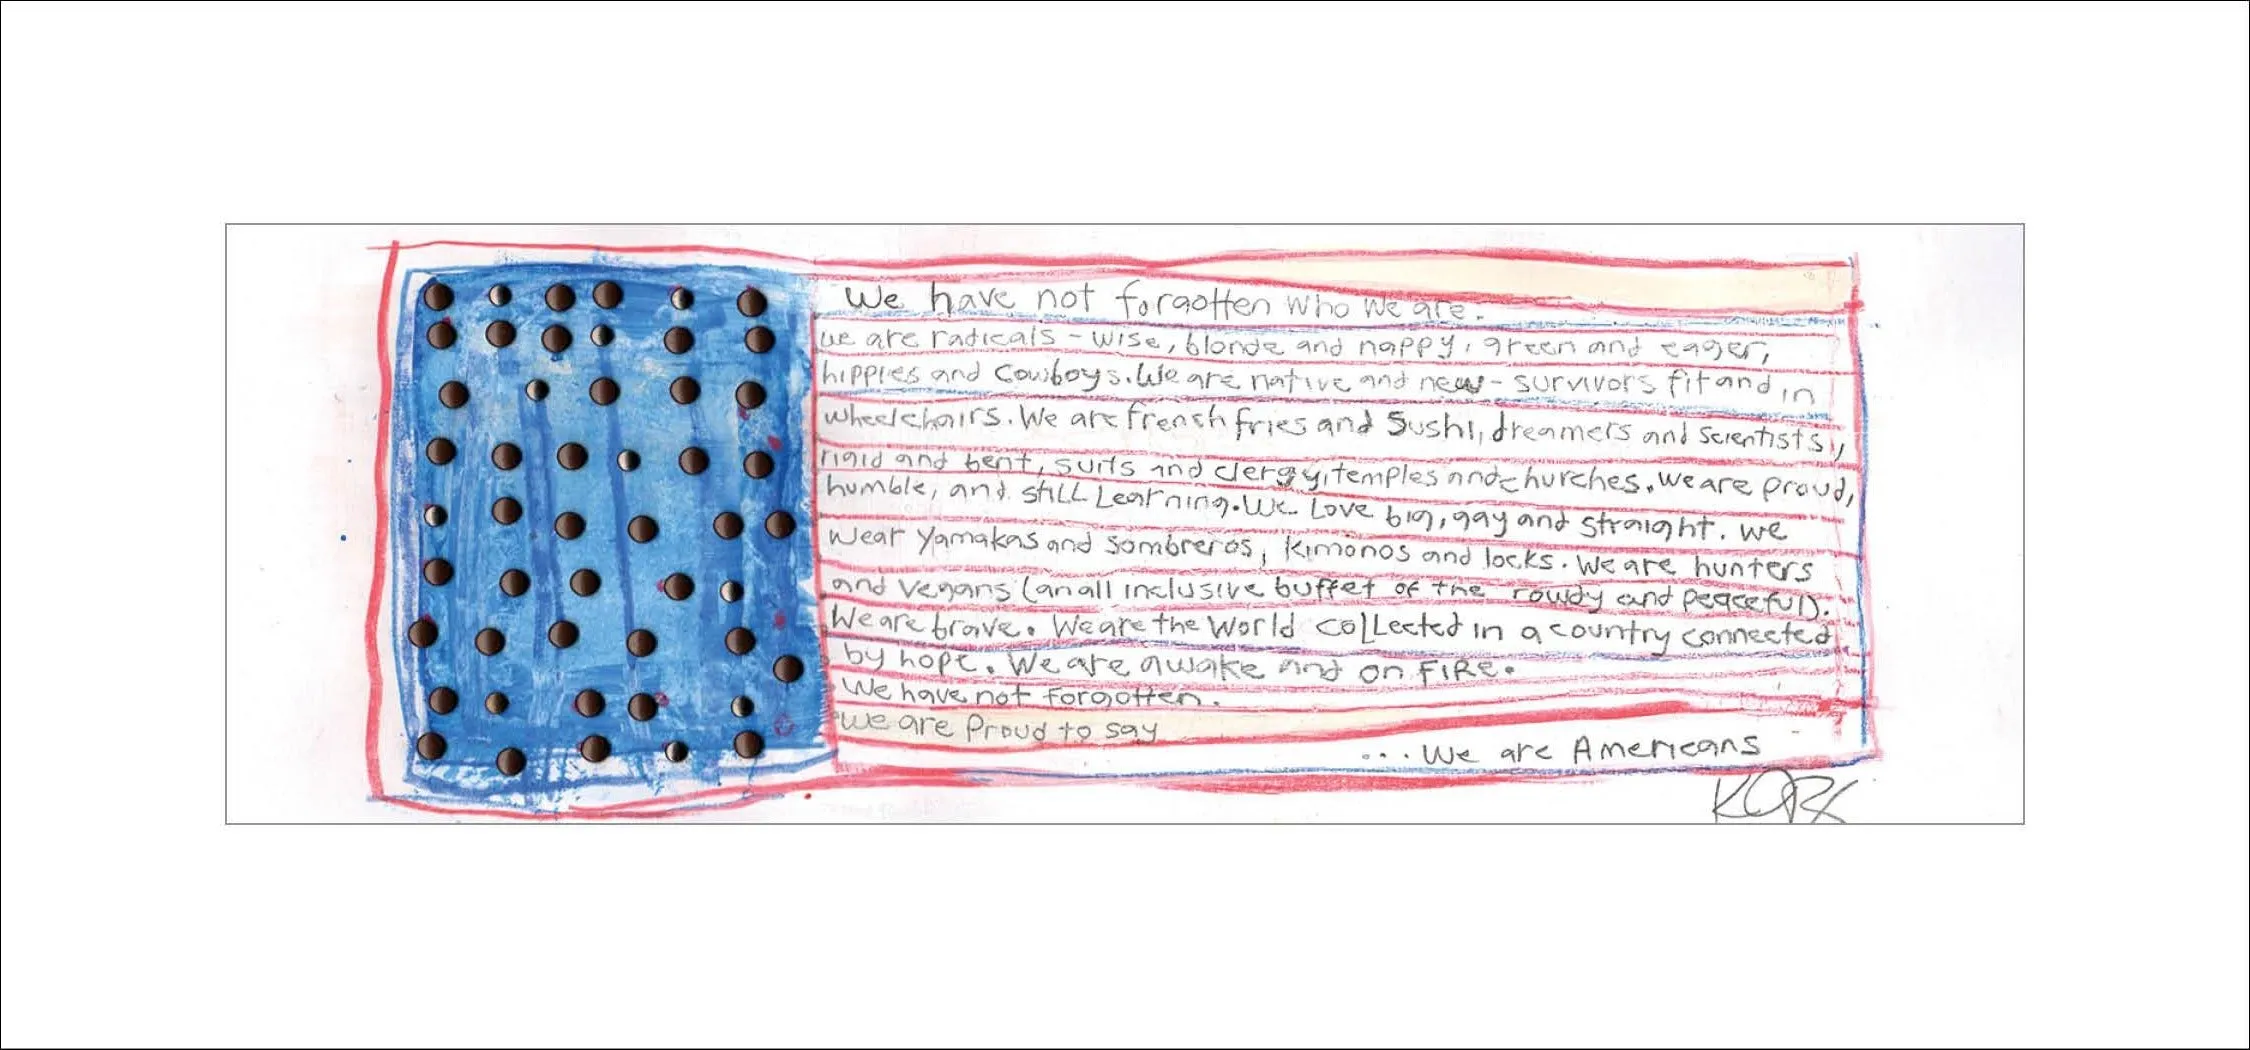 We have not forgotten who we are.
we are radicals - wise, blonde and nappy, green and eager,
hippies and cowboys. We are native and new - survivors fit and in
wheelchairs. We are french fries and sushi, dreamers and scientists,
rigid and bent, suits and clergy, temples and churches. we are proud,
humble, and still Learning. We Love big, gay and straight. we
wear yamakas and sombreros, kimonos and locks. We are hunters
and vegans (an all inclusive buffet of the rowdy and peaceful).
We are brave. We are the World coLLected in a country connected
by hope. We are awake and on FIRE.
We have not forgotten.
we are proud to say
... We are Americans